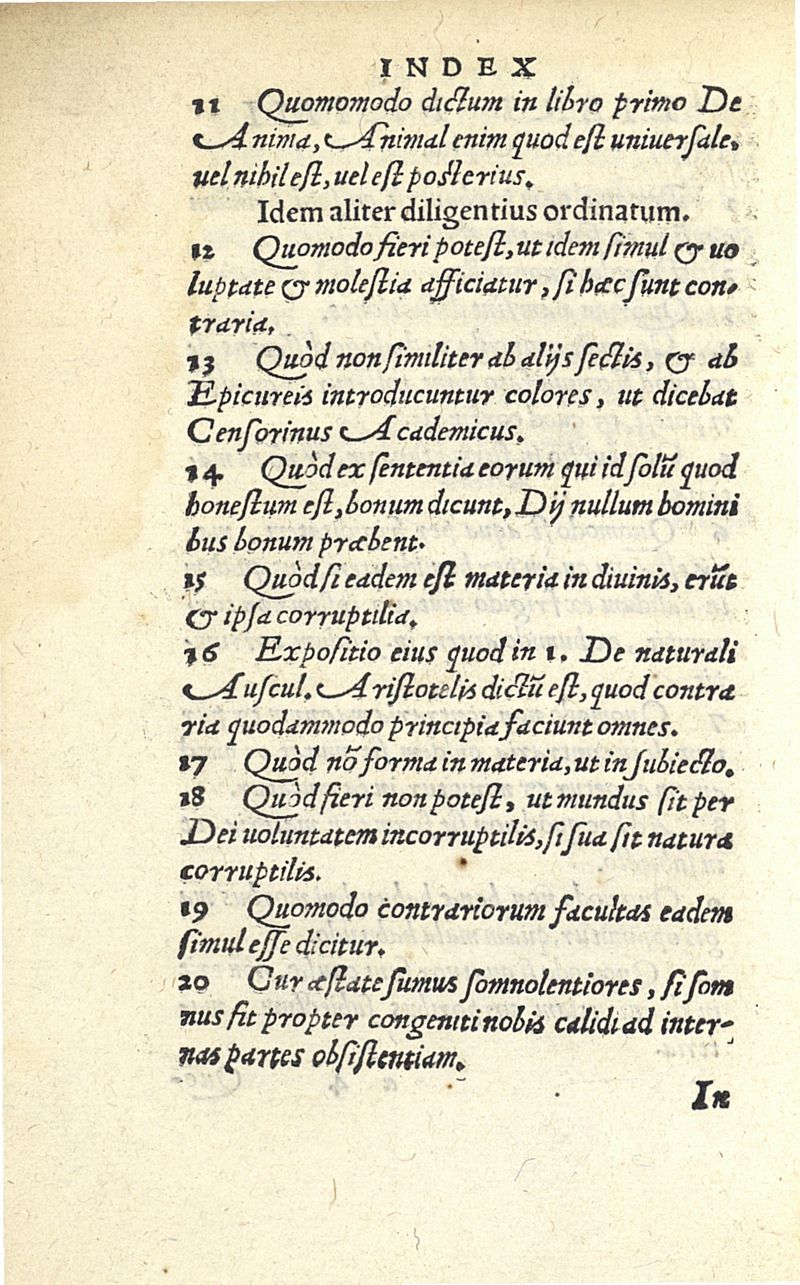 INDEX
11 Quomomodo dictum in libro primo De
Anima, Animal enim quod est uniuersale,
uel nihil est, uel est posterius.
Idem aliter diligentius ordinatum.
12 Quomodo fieri potest, ut idem simul & uo
luptate & molestia afficiatur, si hæc sunt con-
traria.
13 Quòd non similiter ab alijs sectis, & ab
Epicureis introducuntur colores, ut dicebat
Censorinus Academicus.
14 Quòd ex sententia eorum qui id solũ quod
honestum est, bonum dicunt, Dij nullum homini
bus bonum præbent.
15 Quòd si eadem est materia in diuinis, erũt
& ipsa corruptilia.
16 Expositio eius quod in 1. De naturali
Auscul. Aristotelis dictũ est, quod contra
ria quodammodo principia faciunt omnes.
17 Quòd nõ forma in materia, ut in subiecto.
18 Quòd fieri non potest, ut mundus sit per
Dei uoluntatem incorruptilis, si sua sit natura
corruptilis.
19 Quomodo contrariorum facultas eadem
simul esse dicitur.
20 Cur æstate sumus somnolentiores, si som
nus fit propter congeniti nobis calidi ad inter-
nas partes obsistentiam.
In